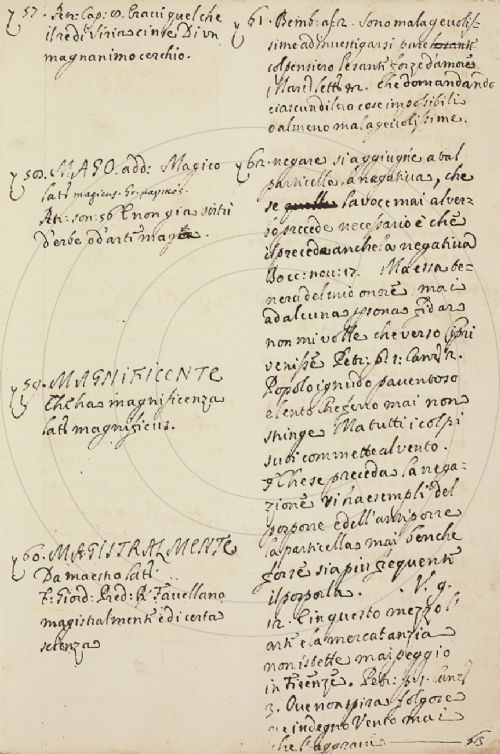 57. Petr: Cap: 8. Eravi quel che
il re di Siria cinse Di un
magnanimo cerchio.
58. MAGO. add: Magico
latᵉ magicus. Gr. μαγικός.
Petr: son: 56 E non già virtù
d'erbe o d'arte maga.
59. MAGNIFICENTE
Che ha magnificenza
latᵉ magnificus.
60. MAGISTRALMENTE
Da maestro latᵉ:
F: Giord: Pred: R Favellano
magistralmente e di certa
scienza
61. Bemb: asr. Sono malagevolis-
sime ad investigarsi pure
col pensiero le santi forze d'amore
lett: 12. Che domandando
ciascun di loro cose impossibili
o almeno malagevolissime.
62. negare si aggiugne a tal
particella la negativa, che
se la voce mai al ver-
bo precede necessario è che
il preceda anche la negativa
Bocc: nov: 17. Ma essa te-
nera del mio onore mai
ad alcuna psona fidar
non mi volle che verso Cipri
venisse Petr: p: 1: canz: 2.
Popolo ignudo paventoso
e lento che ferro mai non
stringe Ma tutti i colpi
suoi commette al vento.
Che se preceda la nega-
zione vi ha esempli del
posporre e dell'anteporre
la particella mai benche
forse sia più frequente
il posporla. V. g.
12. E in questo mezzo l'
arti e la mercatanzia
non istette mai peggio
in Firenze. Petr: p: 1: canz:
3. Ove non spira folgore
ne indegno vento mai
che l'aggravi 63